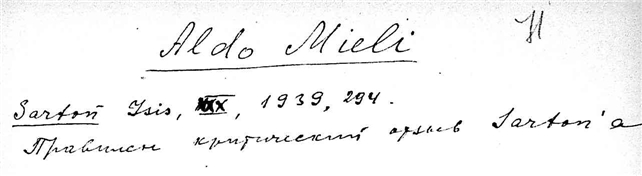 Aldo Mieli
И
Sarton Isis, XXX, 1939, 294.
Правилен критический отзыв Sarton'a